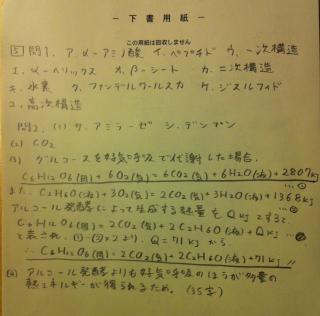 －下書用紙－
この用紙は回収しません
5 問1. ア. α-アミノ酸 イ. ペプチド ウ. 一次構造
エ. α-ヘリックス オ. β-シート カ. 二次構造
キ. 水素 ク. ファンデルワールスカ ケ. ジスルフィド
コ. 高次構造
問2. (1) サ. アミラーゼ シ. デンプン
(2) CO₂
(3) グルコースを好気呼吸で代謝した場合,
C₆H₁₂O₆(固) + 6O₂(気) = 6CO₂(気) + 6H₂O(液) + 2807kJ …①
また, C₂H₆O(液) + 3O₂(気) = 2CO₂(気) + 3H₂O(液) + 1368kJ …②
アルコール発酵によって生成する熱量をQkJとすると
C₆H₁₂O₆(固) = 2CO₂(気) + 2C₂H₆O(液) + QkJ
と表され, ①-②×2より, Q=71kJから
∴ C₆H₁₂O₆(固) = 2CO₂(気) + 2C₂H₆O(液) + 71kJ
(4) アルコール発酵よりも好気呼吸のほうが多量の
熱エネルギーが得られるため。(35字)